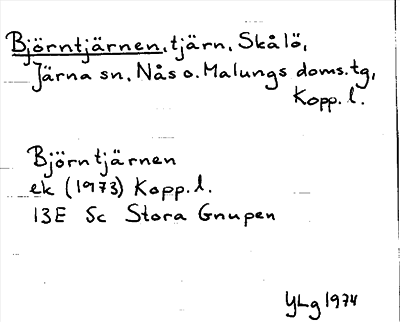 Björntjärnen, tjärn, Skålö,
Järna sn, Nås o. Malungs doms.tg,
Kopp. l.
Björntjärnen
ek (1973) Kopp. l.
13E 5c Stora Gnupen
YLg 1974